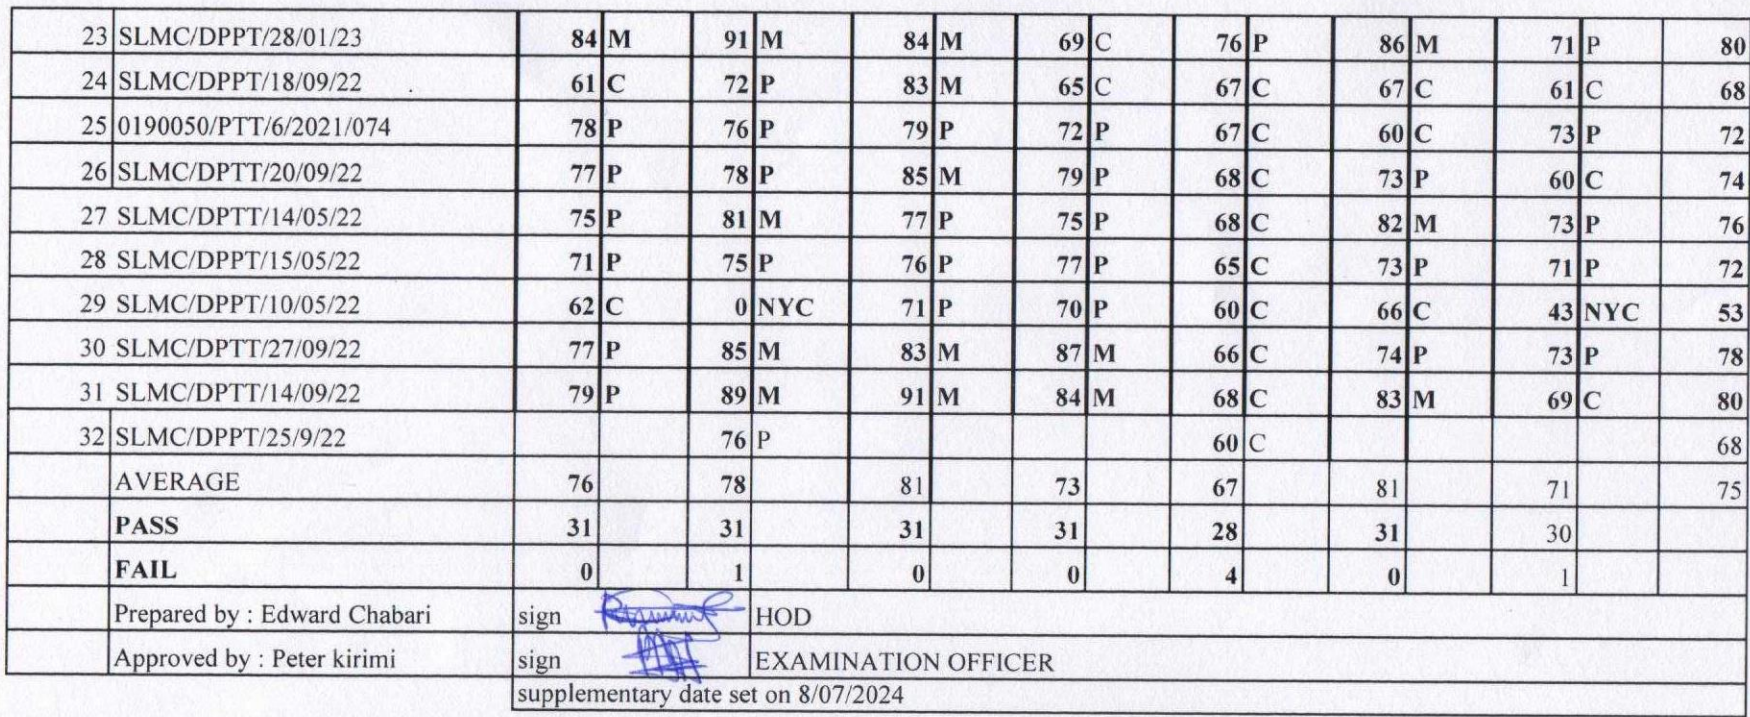 23 SLMC/DPPT/28/01/23 84 M 91 M 84 M 69 C 76 P 86 M 71 P 80
24 SLMC/DPPT/18/09/22 61 C 72 P 83 M 65 C 67 C 67 C 61 C 68
25 0190050/PTT/6/2021/074 78 P 76 P 79 P 72 P 67 C 60 C 73 P 72
26 SLMC/DPTT/20/09/22 77 P 78 P 85 M 79 P 68 C 73 P 60 C 74
27 SLMC/DPTT/14/05/22 75 P 81 M 77 P 75 P 68 C 82 M 73 P 76
28 SLMC/DPPT/15/05/22 71 P 75 P 76 P 77 P 65 C 73 P 71 P 72
29 SLMC/DPPT/10/05/22 62 C 0 NYC 71 P 70 P 60 C 66 C 43 NYC 53
30 SLMC/DPTT/27/09/22 77 P 85 M 83 M 87 M 66 C 74 P 73 P 78
31 SLMC/DPTT/14/09/22 79 P 89 M 91 M 84 M 68 C 83 M 69 C 80
32 SLMC/DPPT/25/9/22 76 P 60 C 68
AVERAGE 76 78 81 73 67 81 71 75
PASS 31 31 31 31 28 31 30
FAIL 0 1 0 0 4 0 1
Prepared by : Edward Chabari sign HOD
Approved by : Peter kirimi sign EXAMINATION OFFICER
supplementary date set on 8/07/2024